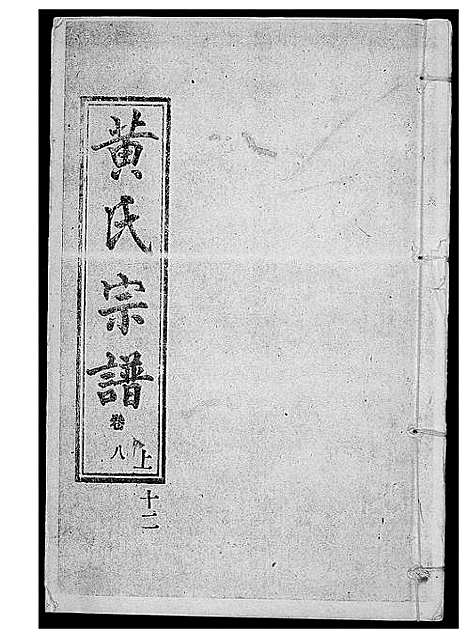 黄氏宗譜
卷八上
十二